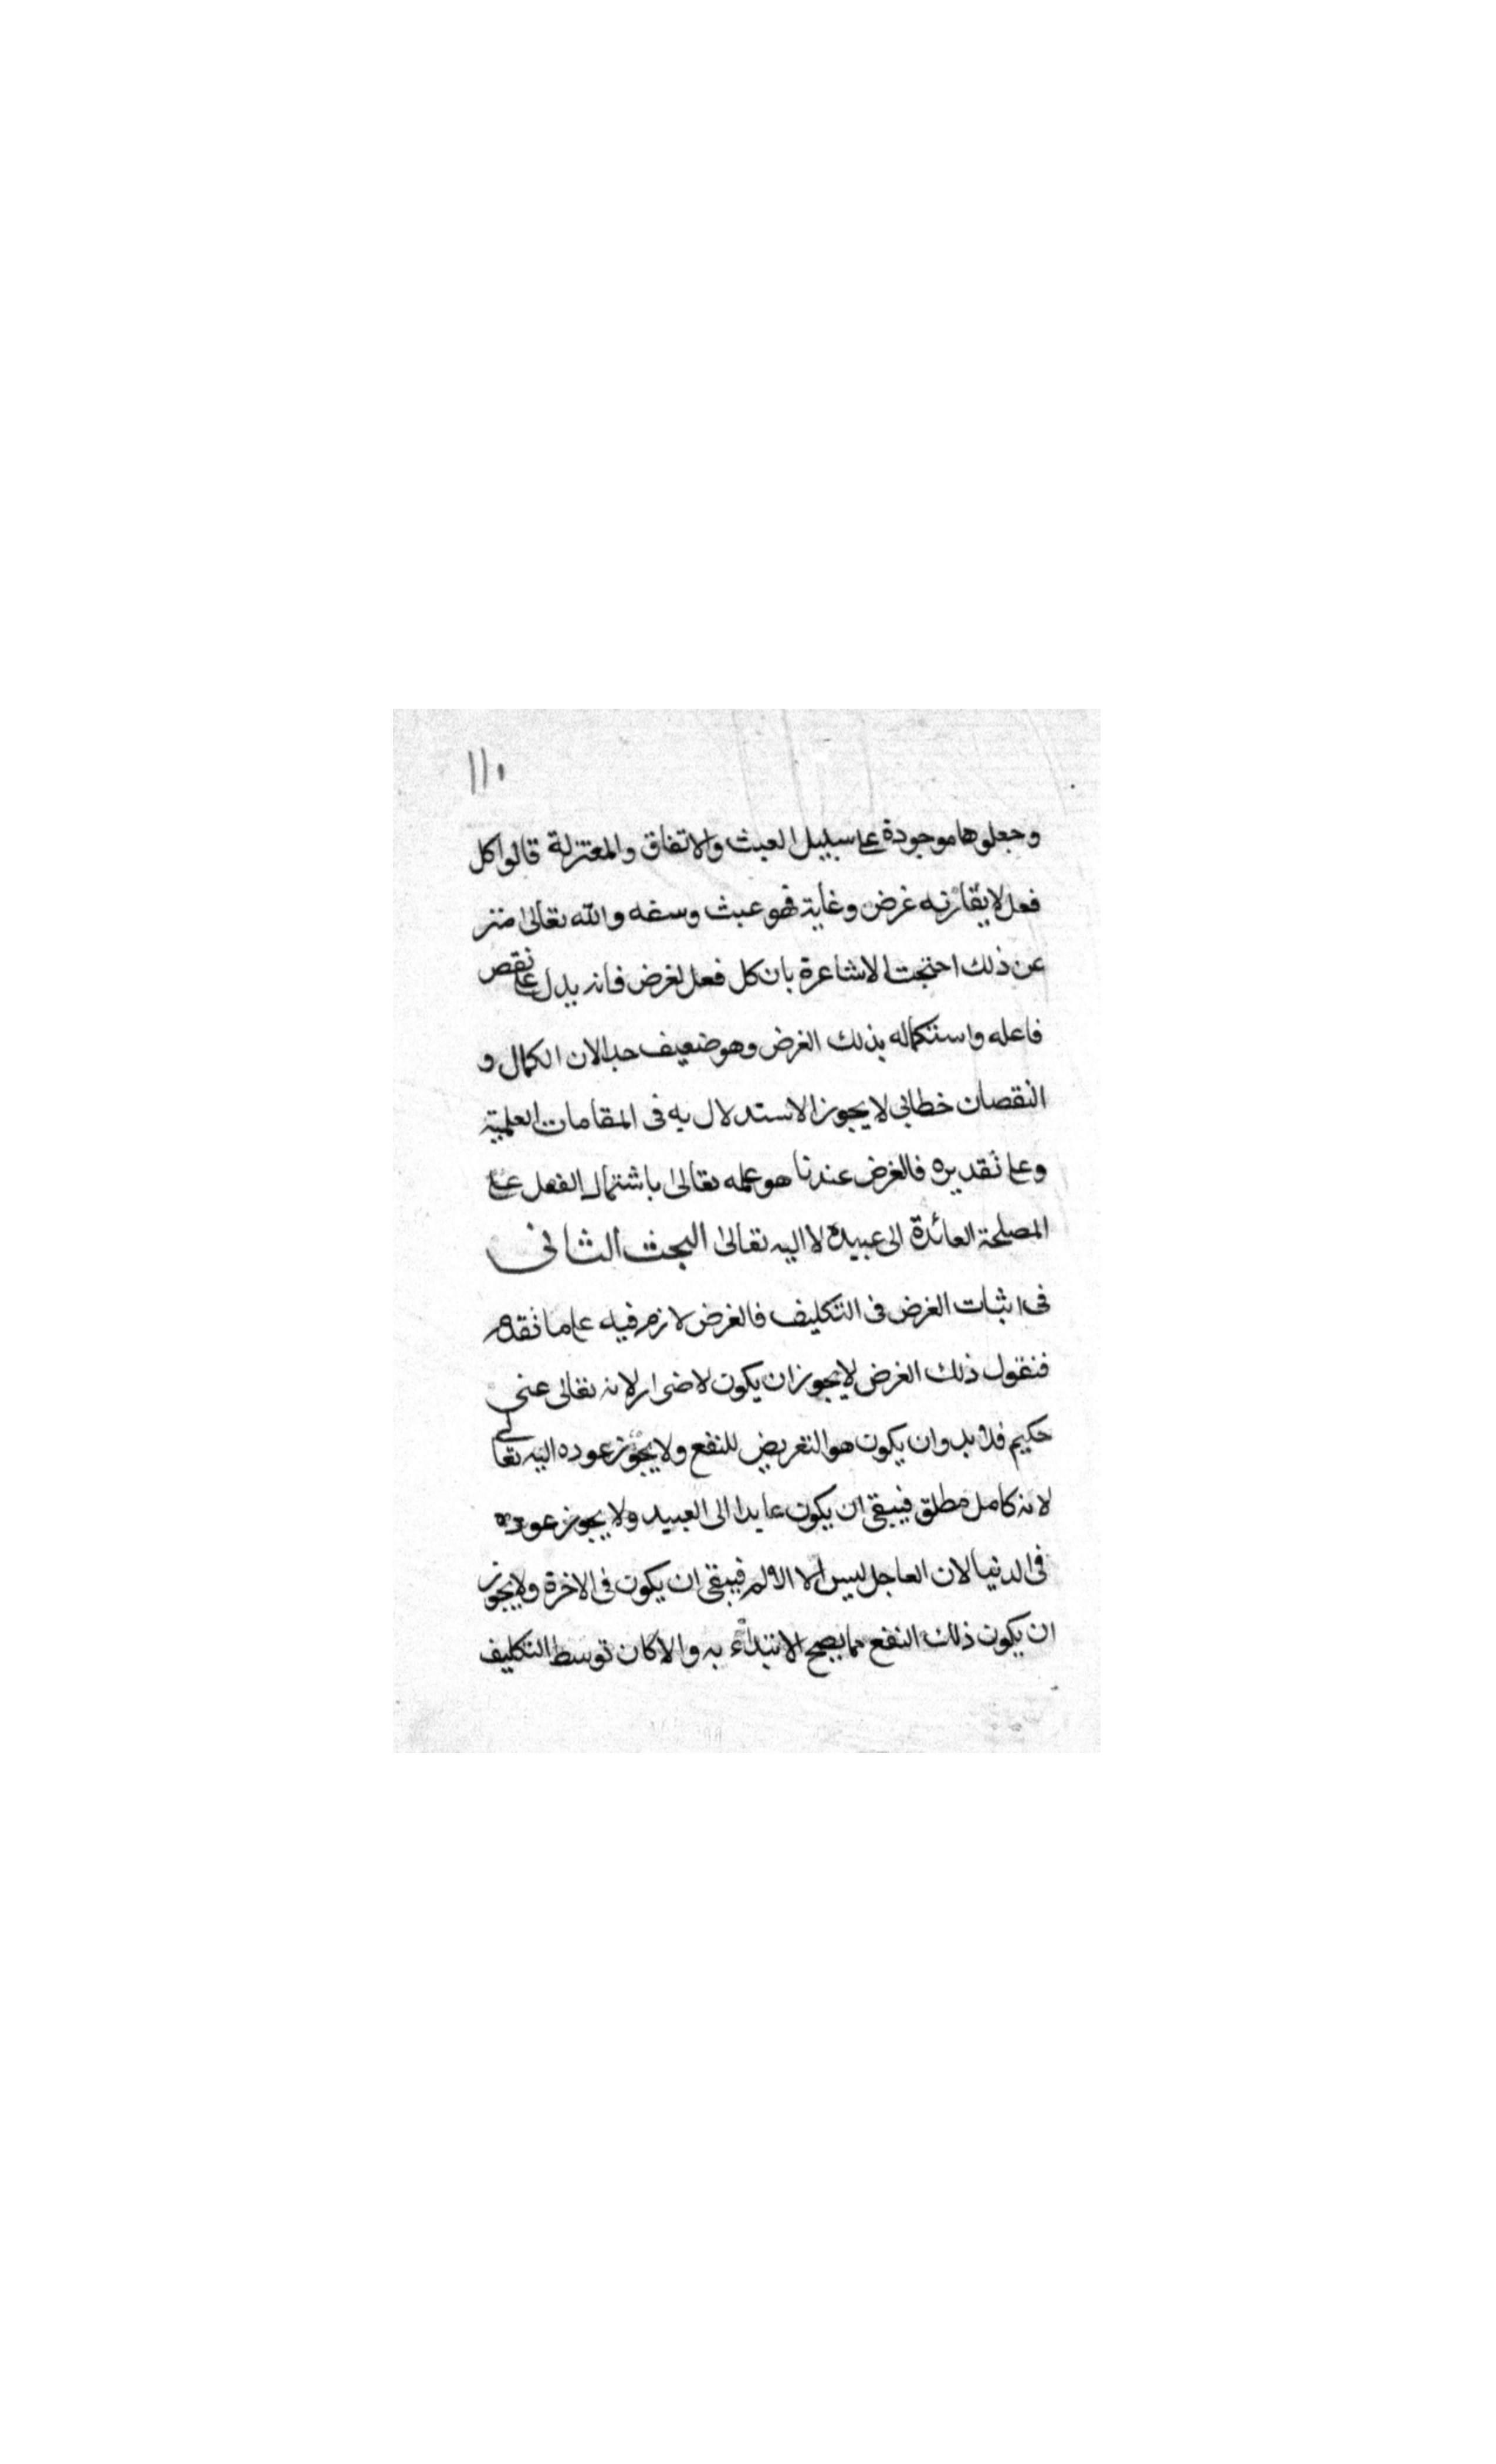 ١١٠
وجعلوها موجودة على سبيل العبث والاتفاق والمعتزلة قالوا كل
فعل لا يقارنه غرض وغاية فهو عبث وسفه والله تعالى منزه
عن ذلك احتجت الاشاعرة بان كل فعل لغرض فانه يدل على نقص
فاعله واستكماله بذلك الغرض وهو ضعيف جدا لان الكمال و
النقصان خطابي لا يجوز الاستدلال به في المقامات العلمية
وعلى تقديره فالغرض عندنا هو علمه تعالى باشتمال الفعل على
المصلحة العائدة الى عبيده لا اليه تعالى البحث الثاني
في اثبات الغرض في التكليف فالغرض لازم فيه على ما تقدم
فنقول ذلك الغرض لا يجوز ان يكون لاضرار لانه تعالى غني
حكيم فلا بد وان يكون هو التعريض للنفع ولا يجوز عوده اليه تعالى
لانه كامل مطلق فيبقى ان يكون عايدا الى العبيد ولا يجوز عوده
في الدنيا لان العاجل ليس الا الالم فيبقى ان يكون في الاخرة ولا يجوز
ان يكون ذلك النفع مما يصح الابتداء به والا كان توسط التكليف